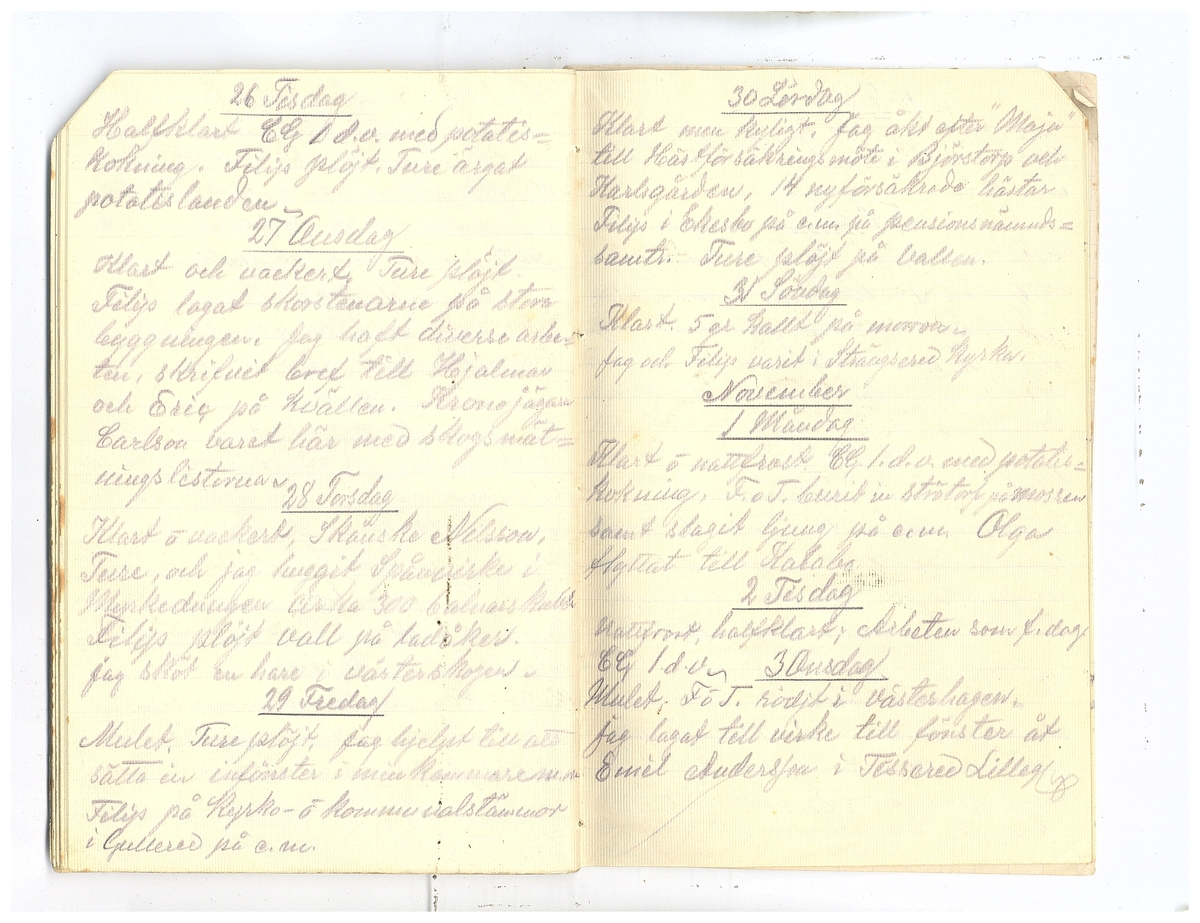 26 Tisdag
Halfklart EG 1 d.v. med potatis=
kokning. Filip plöjt. Ture ärgat
potatislanden
27 Onsdag
Klart och vackert, Ture plöjt.
Filip lagat skorstenarne på stora
byggningen. Jag haft diverse arbe-
ten, skrifvit bref till Hjalmar
och Eric på kvällen. Kronojägare
Carlson varet här med skogsmät=
ningslistorna
28 Torsdag
Klart o vackert, Skånske Nilsson,
Ture, och jag huggit Spånvirke i
cirka 300
Filip plöjt vall på ladåker.
Jag sköt en hare i västerskogen.
29 Fredag
Mulet, Ture plöjt, jag hjelpt till att
sätta in infönster i min kammare m.m
Filip på Kyrko- o kommunalstämmor
i Gullered på e.m.
30 Lördag
Klart men kyligt. Jag åkt efter "Maja"
till Hästförsäkringsmöte i Björstorp och
Karlsgården, 14 nyförsäkrade hästar
Filip i Ekesbo på e.m. på pensionsnämnds=
samtr. Ture plöjt på vallen.
31 Söndag
Klart. 5 gr kallt på morron.
Jag och Filip varit i Strängsered Kyrka.
November
1 Måndag
Klart o nattfrost EG. 1. d. v. med potatis=
kokning, F. o T. burit in strötorf på mossen
samt slagit ljung på e.m. Olga
flyttat till
2 Tisdag
Nattfrost, halfklart, Arbeten som f. dag
EG 1 d. v. 3 Onsdag
Mulet, F o T. rödjt i västerhagen.
jag lagat till virke till fönster åt
Emil Andersson i Tissered Lilleg